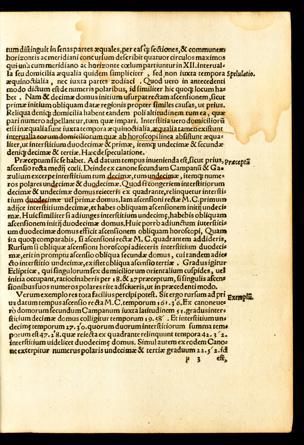 tum distinguit in senas partes æquales, per easq; sectiones, & communem
horizontis ac meridiani concursum describit quatuor circulos maximos
qui unà cum meridiano ac horizonte cœlum partiuntur in XII. interual-
la seu domicilia æqualia quidem simpliciter, sed non iuxta tempora
æquinoctialia, nec iuxta partes zodiaci. Quod uero in antecedenti
modo dictum est de numeris polaribus, id similiter hic quoq; locum ha-
ber. Nam & decimæ domus initium usurpat rectam ascensionem, sicut
primæ initium obliquam datæ regionis propter similes causas, ut prius.
Reliqua deniq; domicilia habent eandem poli altitudinem tum ea, quæ
pari numero appellantur, tum quæ impari. Interstitia uero domiciliorū
etsi inæqualia sunt iuxta tempora æquinoctialia, æqualia tamen existunt
interualla eorum domiciliorum quæ ab horoscopi linea absistunt æqua-
liter, ut interstitium duodecimæ & primæ; undecimæ & secundæ
denicq; decimæ & tertiæ. Hæc de speculatione.
Speculatio.
Præceptum sic se habet. Ad datum tempus inuenienda est, sicut prius,
ascensio recta medij cœli. Deinde ex canone secundum Campanū & Ga-
zulum excerpe interstitium tum decimæ, tum undecimæ, itemq; nume-
ros polares undecimæ & duodecimæ. Quod si congeriem interstitiorum
decimæ & undecimæ domus subieceris ex quadrante, relinquetur intersti-
tium duodecimæ uel primæ domus. Iam ascensioni rectæ M. C. primum
adijce interstitium decimæ, et habes obliquam ascensionem initij undeci-
mæ. Huic similiter si adiunges interstitium undecimæ, habebis obliquam
ascensionem initij duodecimæ domus. Huic porrò adiunctum interstiti-
um duodecimæ domus efficit ascensionem obliquam horoscopi. Quam
ita quoq; comparabis, si ascensioni rectæ M. C. quadrantem addideris.
Rursum si obliquæ ascensioni horoscopi adieceris interstitium duodeci-
mæ, erit in promptu ascensio obliqua secundæ domus, cui tandem adie-
cto interstitio undecimæ, exibit obliqua ascensio tertiæ. Gradus igitur
Eclipticæ, qui singulorum sex domiciliorum orientalium cuspides, uel
initia occupant, ratiocinaberis per 18. & 17. præceptum, si singulis ascensi-
onibus suos numeros polares rite adhibueris, ut in præcedenti modo.
Præceptū
Verum exemplo res tota facilius percipi potest. Sit ergo rursum ad pri
us datum tempus ascensio recta M. C. temporum
Ex canone ue-
ro domorum secundum Campanum iuxta latitudinem 51. gradus inter-
stitium decimæ domus colligitur temporum
Et interstitium un-
decimæ temporum
quorum duorum interstitiorum summa tem-
porum est 47. 28. quæ reiecta ex quadrante relinquunt tempora 42. 32.
interstitium uidelicet duodecimæ domus. Simul autem ex eodem Cano-
ne excerpitur numerus polaris undecimæ & tertiæ graduum
Exemplū.